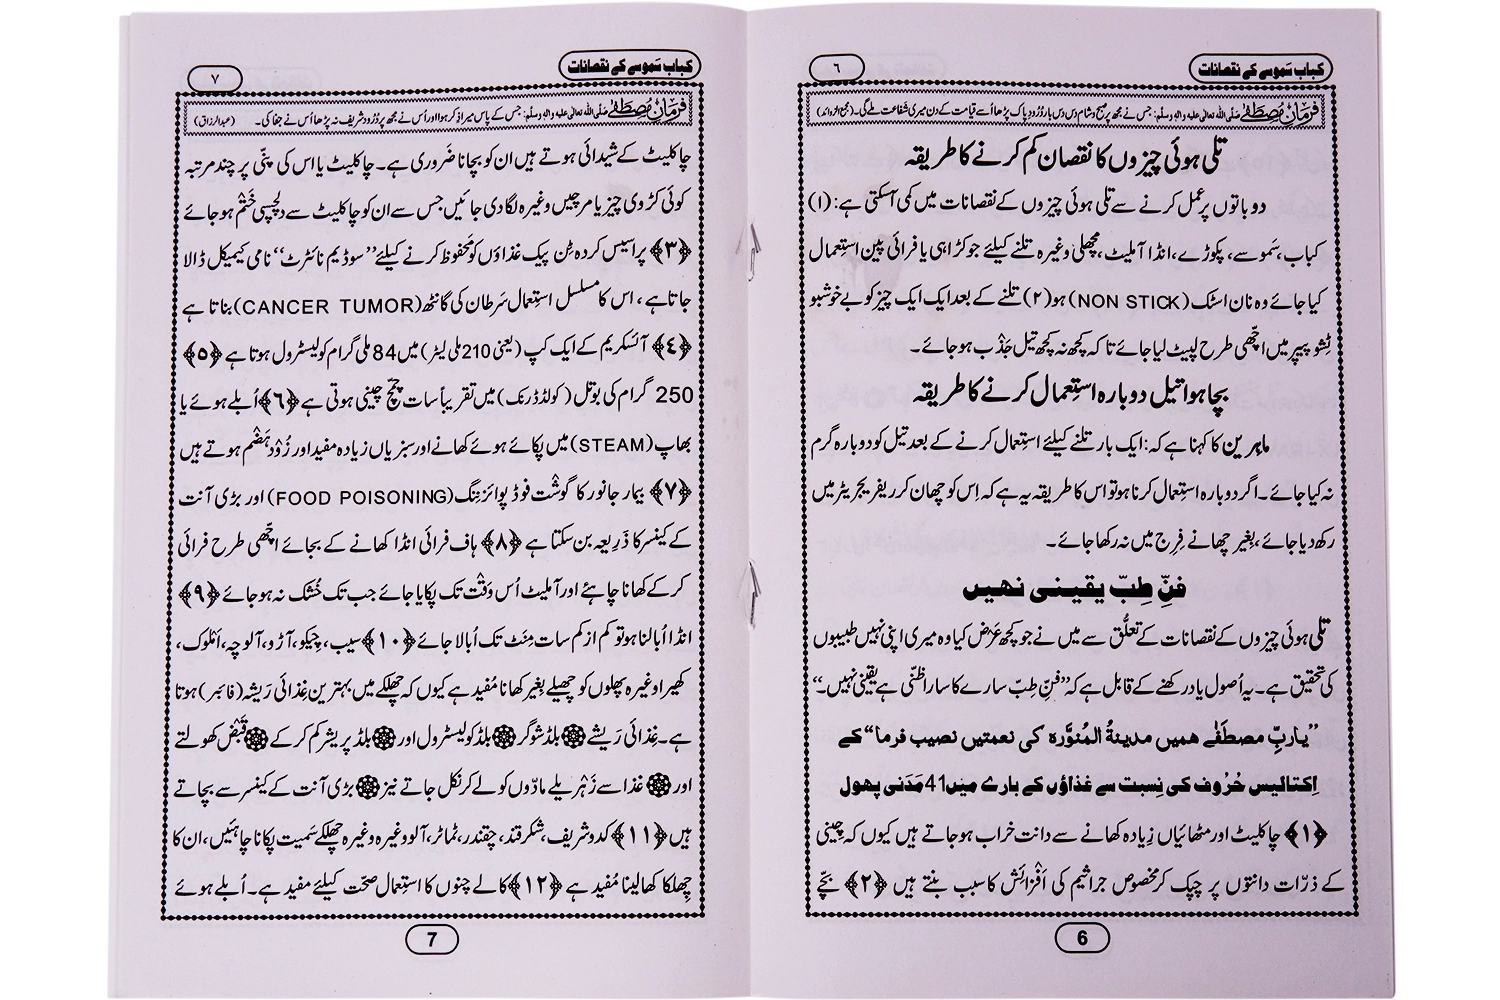 کباب سَموسے کے نقصانات
٦
فرمانِ مصطَفٰے صلَّی اللہ تعالٰی علیہ واٰلہٖ وسلَّم: جس نے مجھ پر صبح و شام دس دس بار دُرُودِ پاک پڑھا اُسے قیامت کے دن میری شفاعت ملے گی۔ (مجمع الزوائد)
تلی ہوئی چیزوں کا نقصان کم کرنے کا طریقہ
دو باتوں پر عمل کرنے سے تلی ہوئی چیزوں کے نقصانات میں کمی آسکتی ہے: (۱)
کباب، سَموسے، پکوڑے، انڈا آملیٹ، مچھلی وغیرہ تلنے کیلئے جو کڑاہی یا فرائی پین استِعمال
کیا جائے وہ نان اسٹک (NON STICK) ہو (۲) تلنے کے بعد ایک ایک چیز کو بے خوشبو
ٹِشو پیپر میں اچّھی طرح لپیٹ لیا جائے تاکہ کچھ نہ کچھ تیل جَذْب ہو جائے۔
بچا ہوا تیل دوبارہ استِعمال کرنے کا طریقہ
ماہِرین کا کہنا ہے کہ: ایک بار تلنے کیلئے استعمال کرنے کے بعد تیل کو دوبارہ گرم
نہ کیا جائے۔ اگر دوبارہ استِعمال کرنا ہو تو اس کا طریقہ یہ ہے کہ اِس کو چھان کر ریفریجریٹر میں
رکھ دیا جائے، بِغیر چھانے فِرِج میں نہ رکھا جائے۔
فنِّ طِبّ یقینی نہیں
تلی ہوئی چیزوں کے نقصانات کے تعلُّق سے میں نے جو کچھ عَرْض کیا وہ میری اپنی نہیں طبیبوں
کی تحقیق ہے۔ یہ اُصول یاد رکھنے کے قابل ہے کہ ”فنِّ طِبّ سارے کا سارا ظنّی ہے یقینی نہیں۔“
”یاربِّ مصطَفٰے ہمیں مدینۃُ المُنوَّرہ کی نعمتیں نصیب فرما“ کے
اِکتالیس حُرُوف کی نِسبت سے غذاؤں کے بارے میں 41 مَدَنی پھول
﴿۱﴾ چاکلیٹ اور مٹھائیاں زیادہ کھانے سے دانت خراب ہو جاتے ہیں کیوں کہ چینی
کے ذرّات دانتوں پر چپک کر مخصوص جراثیم کی اَفْزائش کا سبب بنتے ہیں ﴿۲﴾ بچّے
6
کباب سَموسے کے نقصانات
۷
فرمانِ مصطَفٰے صلَّی اللہ تعالٰی علیہ واٰلہٖ وسلَّم: جس کے پاس میرا ذکر ہوا اور اُس نے مجھ پر دُرُود شریف نہ پڑھا اُس نے جفا کی۔ (عبدالرزاق)
چاکلیٹ کے شیدائی ہوتے ہیں ان کو بچانا ضَروری ہے۔ چاکلیٹ یا اس کی پنّی پر چند مرتبہ
کوئی کڑوی چیز یا مرچیں وغیرہ لگا دی جائیں جس سے ان کو چاکلیٹ سے دلچسپی خَتْم ہو جائے
﴿۳﴾ پراسیس کردہ ٹِن پیک غذاؤں کو مَحفوظ کرنے کیلئے ”سوڈیم نائٹرٹ“ نامی کیمیکل ڈالا
جاتا ہے، اس کا مسلسل استِعمال سَرطان کی گانٹھ (CANCER TUMOR) بناتا ہے
﴿٤﴾ آئسکریم کے ایک کپ (یعنی 210 ملی لیٹر) میں 84 ملی گرام کولیسٹرول ہوتا ہے ﴿۵﴾
250 گرام کی بوتل (کولڈ ڈرنک) میں تقریباً سات چمّچ چینی ہوتی ہے ﴿٦﴾ اُبلے ہوئے یا
بھاپ (STEAM) میں پکائے ہوئے کھانے اور سبزیاں زیادہ مفید اور زُوْد ہَضْم ہوتے ہیں
﴿۷﴾ بیمار جانور کا گوشْت فوڈ پوائزننِگ (FOOD POISONING) اور بڑی آنت
کے کینسر کا ذَرِیعہ بن سکتا ہے ﴿۸﴾ ہاف فرائی انڈا کھانے کے بجائے اچّھی طرح فرائی
کر کے کھانا چاہئے اور آملیٹ اُس وَقْت تک پکایا جائے جب تک خُشک نہ ہو جائے ﴿۹﴾
انڈا اُبالنا ہو تو کم از کم سات مِنَٹ تک اُبالا جائے ﴿۱۰﴾ سیب، چیکو، آڑو، آلوچہ، اَمْلوک،
کھیرا وغیرہ پھلوں کو چھیلے بِغیر کھانا مُفید ہے کیوں کہ چھلکے میں بہترین غِذائی رَیشہ (فائبر) ہوتا
ہے۔ غِذائی رَیشے ۞ بلڈ شوگر ۞ بلڈ کولیسٹرول اور ۞ بلڈ پریشر کم کر کے ۞ قَبْض کھولتے
اور ۞ غذا سے زَہْریلے مادّوں کو لے کر نکل جاتے نیز ۞ بڑی آنت کے کینسر سے بچاتے
ہیں ﴿۱۱﴾ کدو شریف، شکر قند، چقندر، ٹماٹر، آلو وغیرہ وغیرہ چھلکے سَمیت پکانا چاہئیں، ان کا
چِھلکا کھا لینا مُفید ہے ﴿۱۲﴾ کالے چنوں کا استِعمال صحّت کیلئے مفید ہے۔ اُبلے ہوئے
7